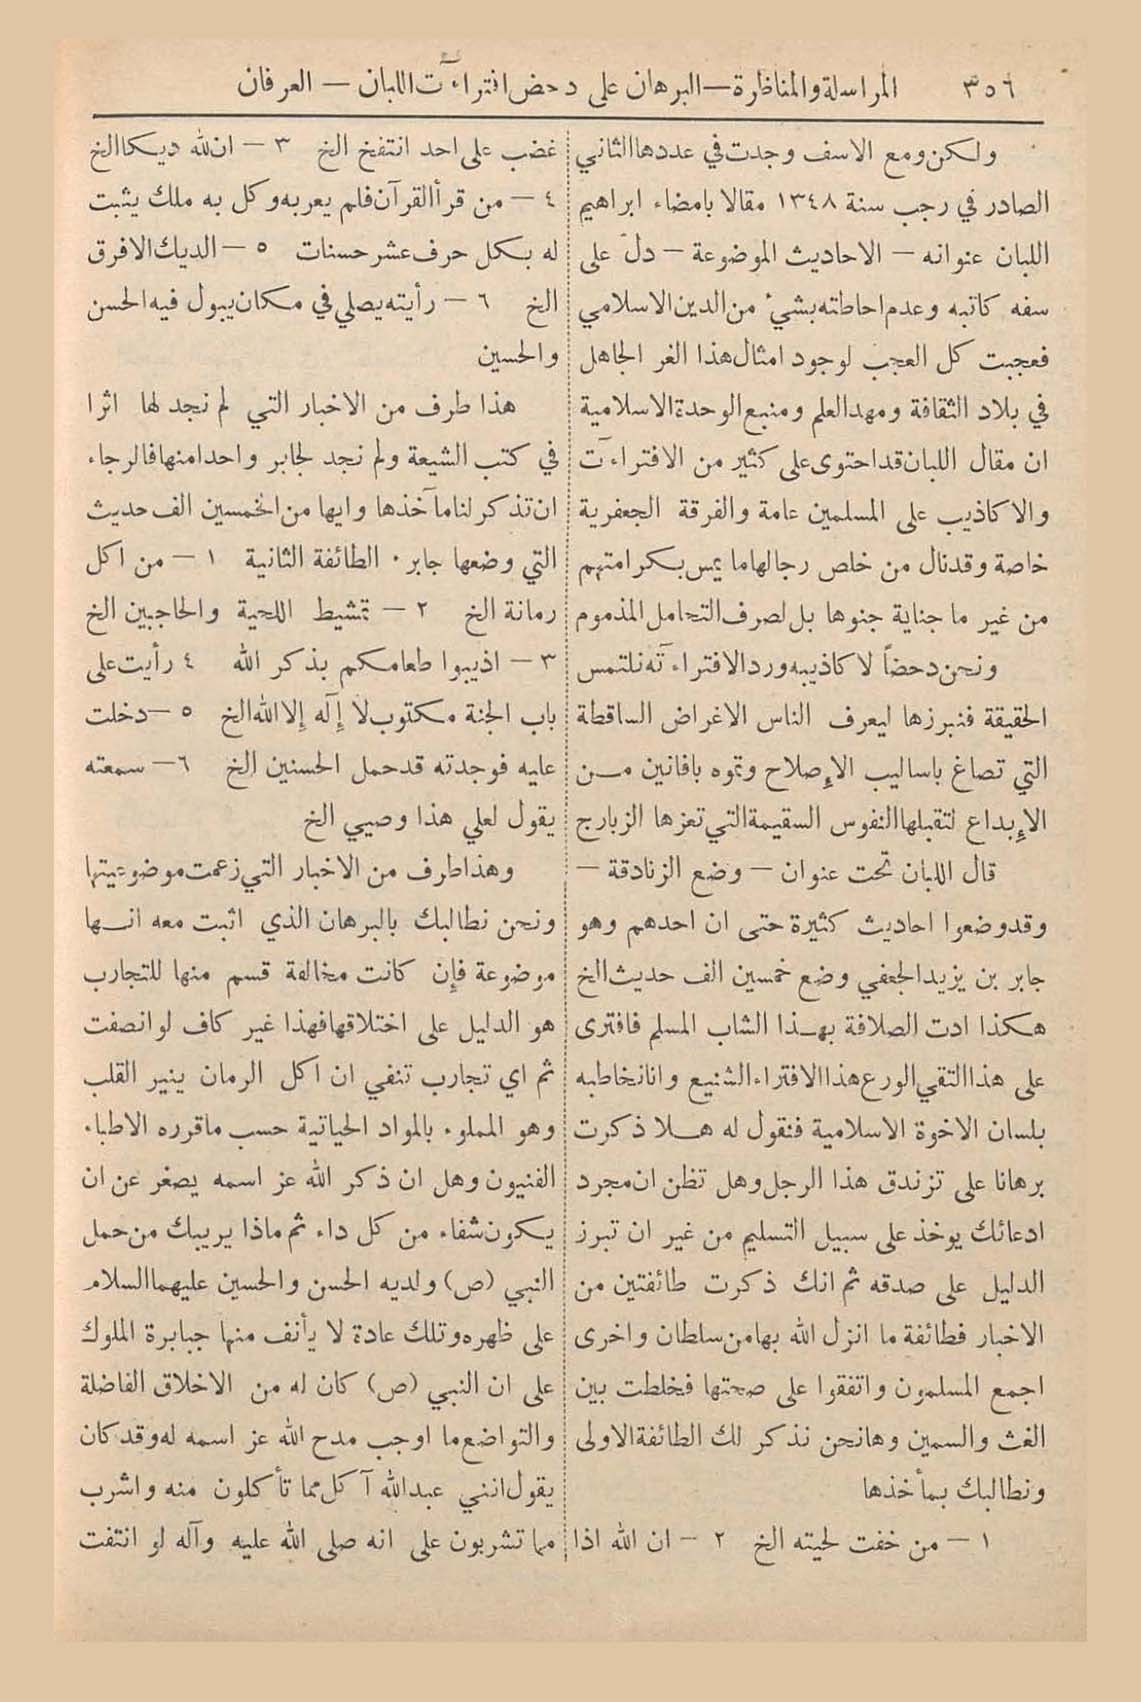 ٣٥٦ المراسلة والمناظرة — البرهان على دحض افتراءآت اللبان — العرفان
ولكن ومع الاسف وجدت في عددها الثاني
الصادر في رجب سنة ١٣٤٨ مقالا بامضاء ابراهيم
اللبان عنوانه — الاحاديث الموضوعة — دلّ على
سفه كاتبه وعدم احاطته بشيء من الدين الاسلامي
فعجبت كل العجب لوجود امثال هذا الغر الجاهل
في بلاد الثقافة ومهد العلم ومنبع الوحدة الاسلامية
ان مقال اللبان قد احتوى على كثير من الافتراءآت
والاكاذيب على المسلمين عامة والفرقة الجعفرية
خاصة وقد نال من خلص رجالها ما يمس بكرامتهم
من غير ما جناية جنوها بل لصرف التحامل المذموم
ونحن دحضاً لاكاذيبه ورد الافتراءآته نلتمس
الحقيقة فنبرزها ليعرف الناس الاغراض الساقطة
التي تصاغ باساليب الإصلاح وتموه بافانين مـن
الإبداع لتقبلها النفوس السقيمة التي تعزها الزبارج
قال اللبان تحت عنوان — وضع الزنادقة —
وقد وضعوا احاديث كثيرة حتى ان احدهم وهو
جابر بن يزيد الجعفي وضع خمسين الف حديث الخ
هكذا ادت الصلافة بهـذا الشاب المسلم فافترى
على هذا التقي الورع هذا الافتراء الشنيع وانا نخاطبه
بلسان الاخوة الاسلامية فنقول له هـلا ذكرت
برهانا على تزندق هذا الرجل وهل تظن ان مجرد
ادعائك يوخذ على سبيل التسليم من غير ان تبرز
الدليل على صدقه ثم انك ذكرت طائفتين من
الاخبار فطائفة ما انزل الله بها من سلطان واخرى
اجمع المسلمون واتفقوا على صحتها فخلطت بين
الغث والسمين وها نحن نذكر لك الطائفة الاولى
ونطالبك بمأخذها
١ — من خفت لحيته الخ ٢ — ان الله اذا
غضب على احد انتفخ الخ ٣ — ان لله ديكا الخ
٤ — من قرأ القرآن فلم يعربه وكل به ملك يثبت
له بكل حرف عشر حسنات ٥ — الديك الافرق
الخ ٦ — رأيته يصلي في مكان يبول فيه الحسن
والحسين
هذا طرف من الاخبار التي لم نجد لها اثرا
في كتب الشيعة ولم نجد لجابر واحدا منها فالرجاء
ان تذكر لنا مآخذها وايها من الخمسين الف حديث
التي وضعها جابر . الطائفة الثانية ١ — من اكل
رمانة الخ ٢ — تمشيط اللحية والحاجبين الخ
٣ — اذيبوا طعامكم بذكر الله ٤ رأيت على
باب الجنة مكتوب لا إله إلا الله الخ ٥ — دخلت
عليه فوجدته قد حمل الحسنين الخ ٦ — سمعته
يقول لعلي هذا وصيي الخ
وهذا طرف من الاخبار التي زعمت موضوعيتها
ونحن نطالبك بالبرهان الذي اثبت معه انـها
موضوعة فإن كانت مخالفة قسم منها للتجارب
هو الدليل على اختلاقها فهذا غير كاف لو انصفت
ثم اي تجارب تنفي ان اكل الرمان ينير القلب
وهو المملوء بالمواد الحياتية حسب ما قرره الاطباء
الفنيون وهل ان ذكر الله عز اسمه يصغر عن ان
يكون شفاء من كل داء ثم ماذا يريبك من حمل
النبي (ص) ولديه الحسن والحسين عليهما السلام
على ظهره وتلك عادة لا يأنف منها جبابرة الملوك
على ان النبي (ص) كان له من الاخلاق الفاضلة
والتواضع ما اوجب مدح الله عز اسمه له وقد كان
يقول انني عبد الله آكل مما تأكلون منه واشرب
مما تشربون على انه صلى الله عليه وآله لو انتفت